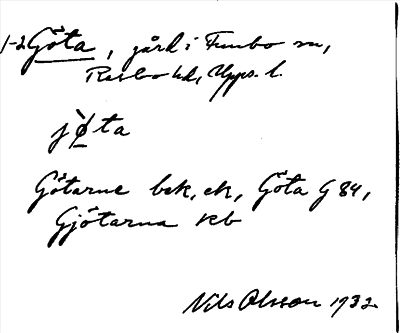 1-2 Göta, gård i Funbo sn,
Rasbo hd, Upps. l.
jø̀ta
Götarne bek, ek, Göta G 84,
Gjötarna kb
Nils Olsson 1932